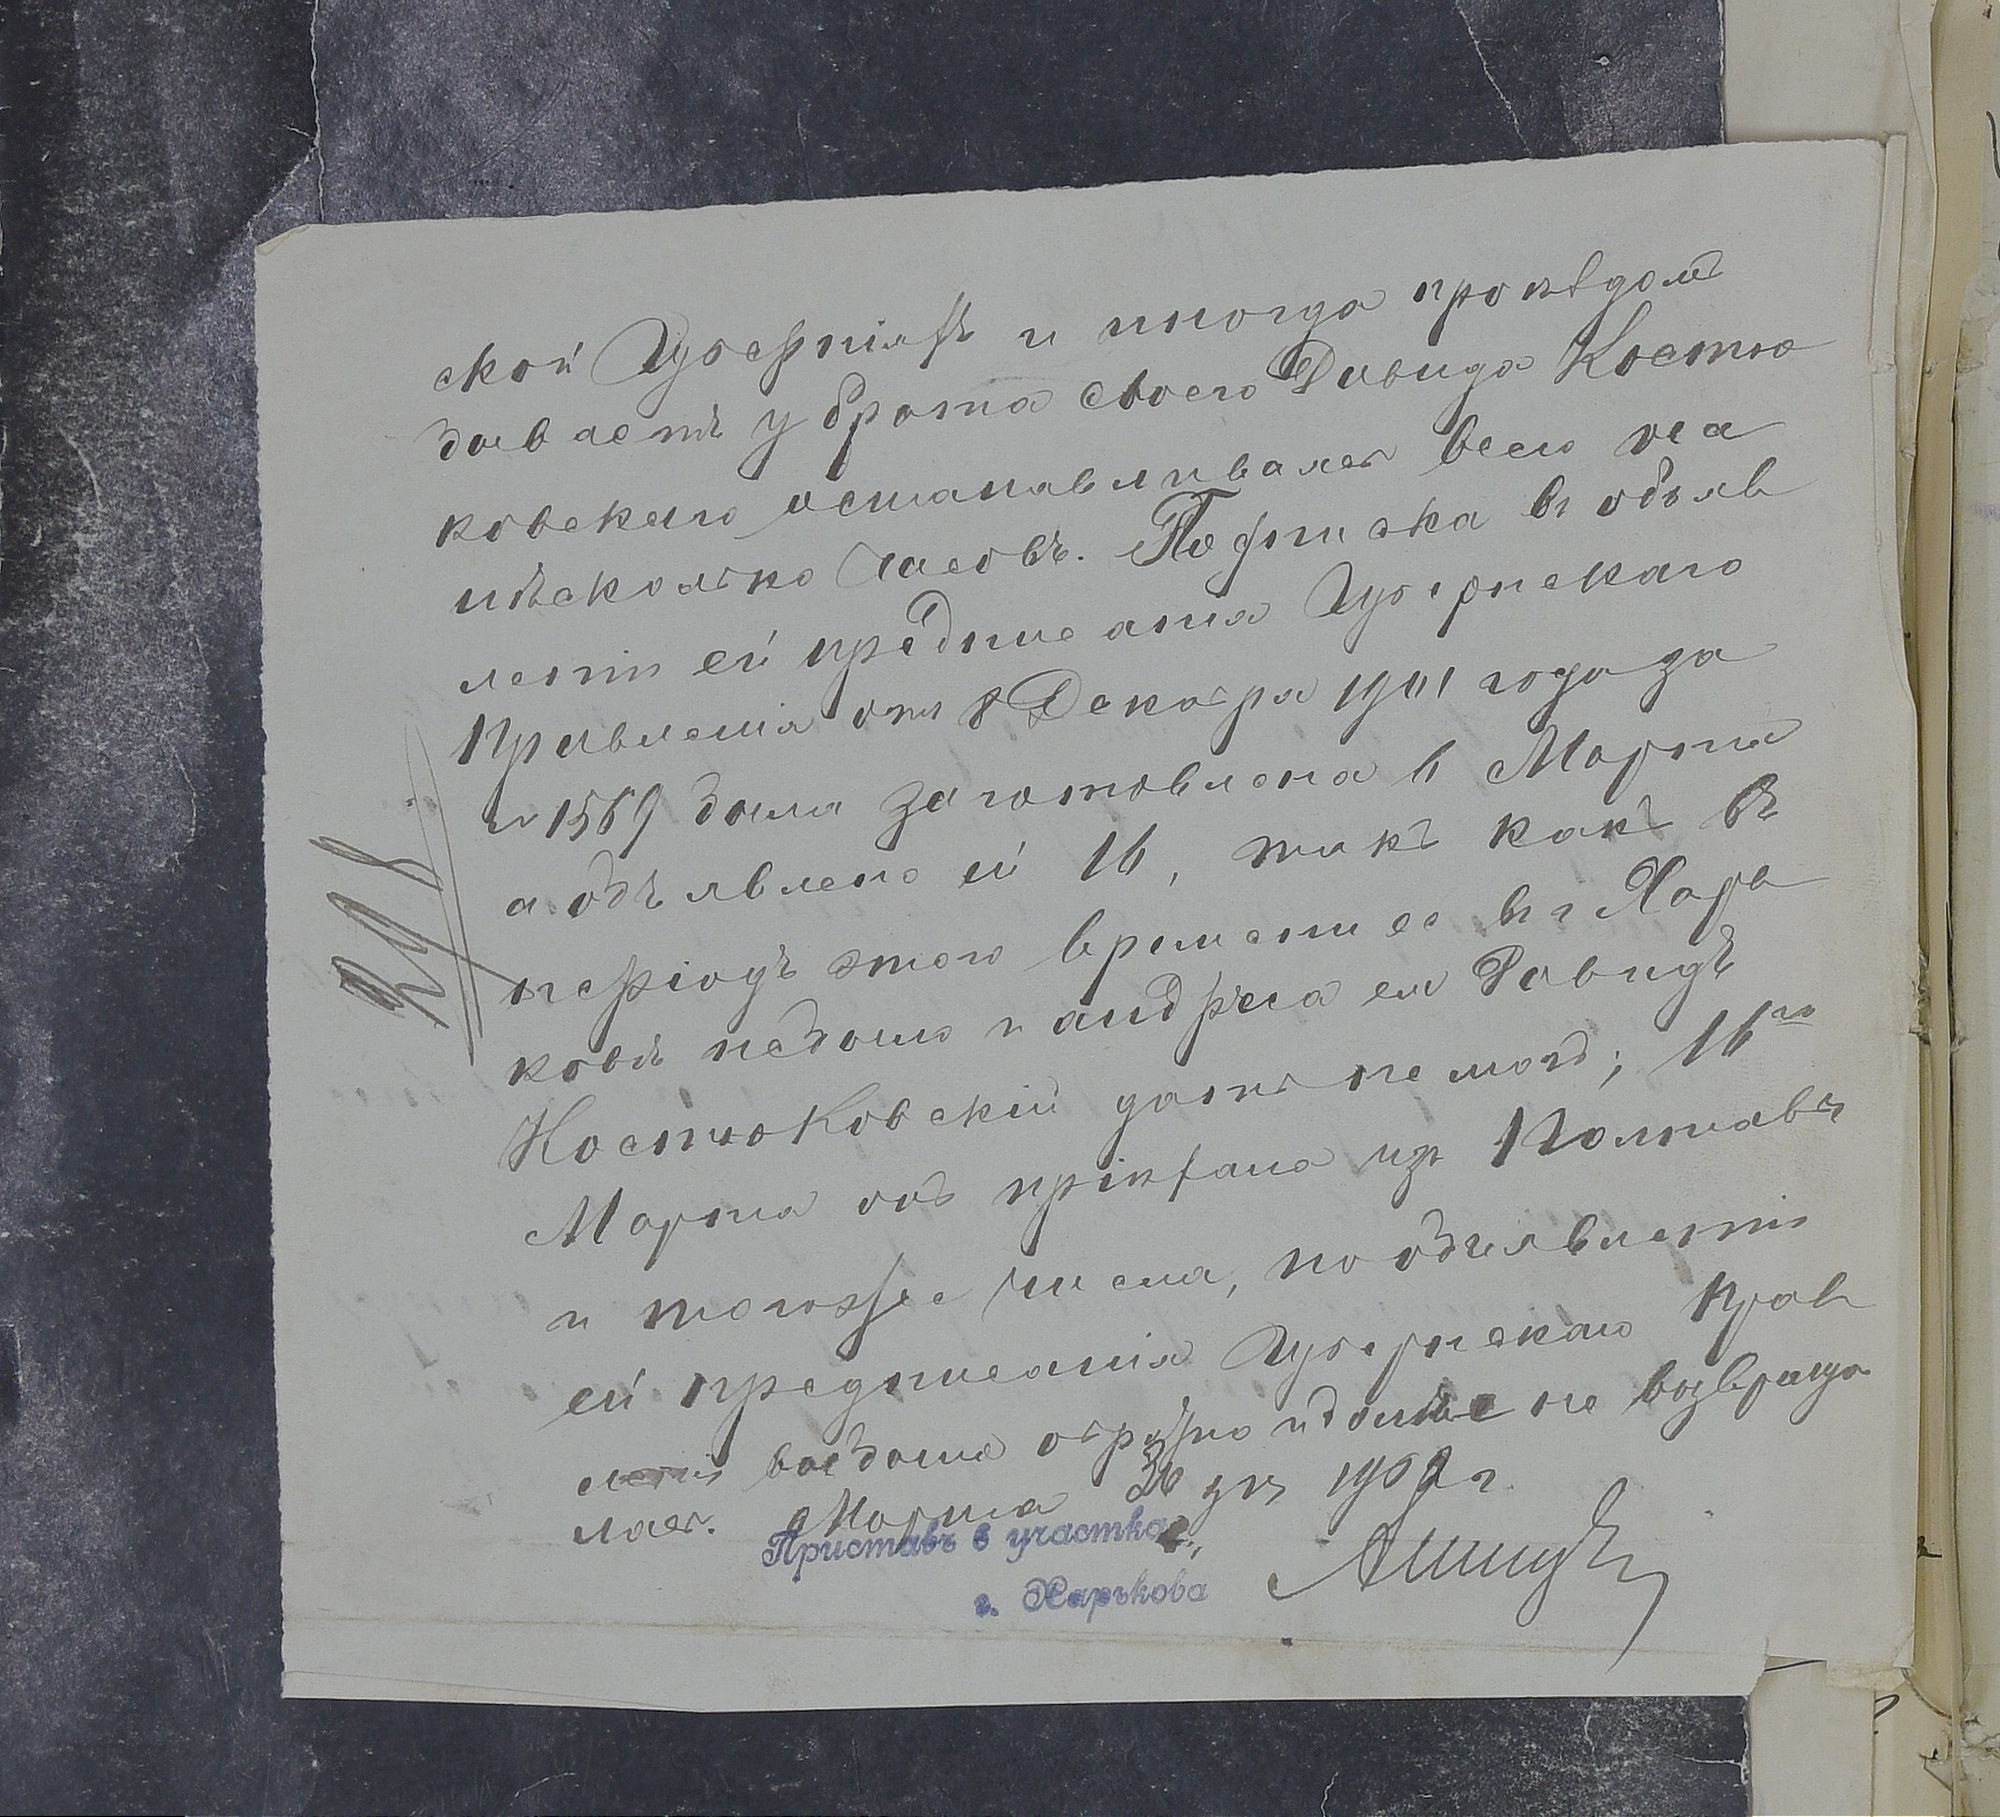 ской Губерніяхъ и иногда проѣздомъ
бываетъ у брата своего Давида Костю
ковскаго останавливаясь всего на
нѣсколько часовъ. Подписка въ объяв
леніи ей предписанія Губернскаго
Правленія отъ 8 Декабря 1901 года за
№ 1569 была заготовлена 6 Марта
а объявлено ей 16, такъ какъ въ
періодъ этого времени ее въ г Харь
ковѣ небыло и адреса ея Давидъ
Костюковскій дать не могъ; 16го
Марта онъ пріѣхала изъ Полтавы
и тогоже числа, по объявленіи
ей предписанія Губернскаго Прав
ленія выбыла обратно и больше не возвраща
лась. Марта 30 дня 1902 г.
Приставъ 6 участка
г. Харькова